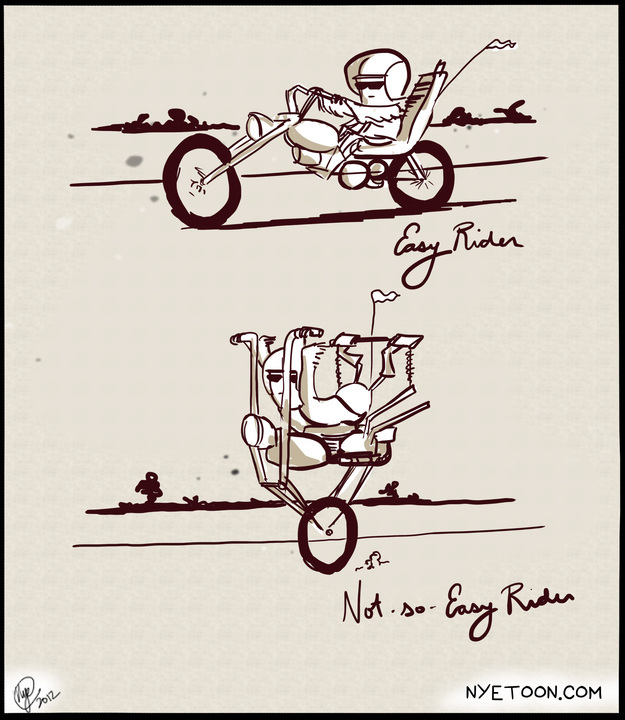 Easy Rider
Not-so-Easy Rider
Nye 2012
NYETOON.COM